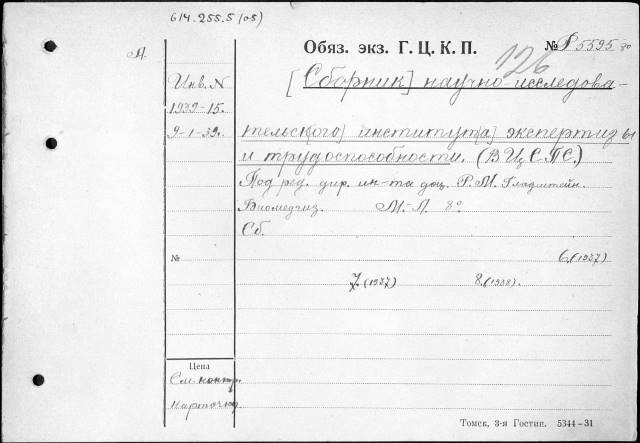 614.255.5(05)
Обяз. экз. Г. Ц. К. П. № Р 5595
126
Инв. N
1939-15.
9-1-39.
[Сборник] научно-исследова-
тельск[ого] институт[а] экспертизы
и трудоспособности. (ВЦСПС.)
Под ред. дир. ин-та доц. Р. М. Гладштейн.
Биомедгиз. М.-Л. 8°
Сб.
№
6.(1937)
7.(1937) 8.(1938).
Цена
См. контр.
карточку
Томск, 3-я Гостип. 5344-31